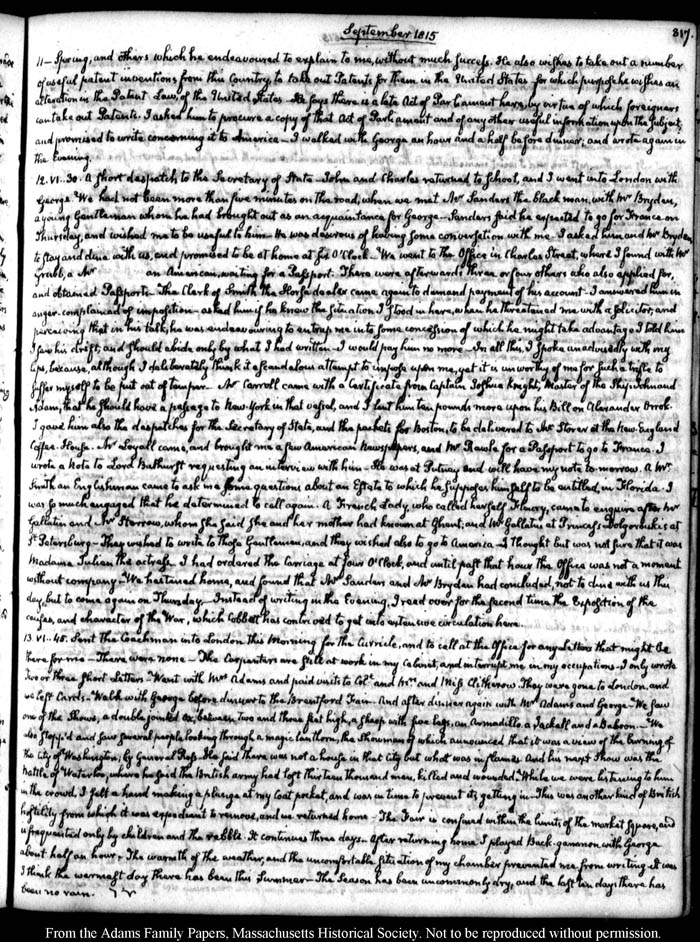 September 1815
317.
11– Spring, and others which he endeavoured to explain to me, without much success. He also wishes to take out a number
of useful patent inventions from this Country, to take out Patents for them in the United States – for which purpose he wishes an
alteration in the Patent Laws, of the United States – He says there is a late Act of Parliament here, by virtue of which foreigners
can take out Patents. I asked him to procure a copy of that Act of Parliament and of any other useful information upon the subject,
and promised to write concerning it to America – I walked with George an hour and a half before dinner; and wrote again in
the Evening.
12. VI. 30. A short despatch to the Secretary of State – John and Charles returned to School, and I went into London with
George. We had not been more than five minutes on the road, when we met Mr Sanders the black man, with Mr Bryden,
a young Gentleman whom he had brought out as an acquaintance for George – Sanders said he expected to go for France on
Thursday, and wished me to be useful to him – He was desirous of having some conversation with me – I asked him and Mr Bryden
to stay and dine with us, and promised to be at home at six O'Clock – We went to the Office in Charles Street, where I found with Mr
Grubb, a Mr an American, waiting for a Passport. There were afterwards three or four others who also applied for,
and obtained Passports – The Clerk of Smith the Horse dealer came again to demand payment of his account – I answered him in
anger – complained of imposition – asked him if he knew the situation I stood in here, when he threatened me with a solicitor, and
perceiving that in his talk, he was endeavouring to entrap me into some concession of which he might take advantage I told him
I saw his drift, and should abide only by what I had written – I would pay him no more – In all this, I spoke unadvisedly with my
lips, because, although I deliberately think it a scandalous attempt to impose upon me, yet it is unworthy of me for such a trifle to
suffer myself to be put out of temper – Mr Carroll came with a Certificate from Captain Joshua Knight, Master of the Ship John and
Adam, that he should have a passage to New-York in that vessel, and I lent him ten pounds more upon his Bill on Alexander Brook.
I gave him also the despatches for the Secretary of State, and the packets for Boston, to be delivered to Mr Storer at the New-England
Coffee-House. Mr Loyall came, and brought me a few American Newspapers, and Mr Rawle for a Passport to go to France. I
wrote a Note to Lord Bathurst requesting an interview with him – He was at Putney and will have my note to-morrow. A Mr
Smith an Englishman came to ask me some questions about an Estate to which he supposes himself to be entitled, in Florida. I
was so much engaged that he determined to call again. A French Lady, who called herself Fleury, came to enquire after Mr
Gallatin and Mr Sterrow, whom she said she and her mother had known at Ghent, and Mr Gallatin at Princess Dolgorouki's at
St Petersburg – They wished to write to those Gentlemen, and they wished also to go to America – I thought but was not sure that it was
Madame Julian the actress. I had ordered the Carriage at four O'Clock, and until past that hour the Office was not a moment
without company. We hastened home, and found that Mr Sanders and Mr Bryden had concluded, not to dine with us this
day, but to come again on Thursday – Instead of writing in the Evening, I read over for the second time the Exposition of the
causes, and character of the War, which Cobbett has contrived to get into extensive circulation here.
13. VI. 45. Sent the Coachman into London this Morning for the Curricle, and to call at the Office for any Letters that might be
there for me – There were none – The Carpenters are still at work in my Cabinet, and interrupt me in my occupations – I only wrote
two or three short Letters – Went with Mrs Adams and paid visits to Coll and Mrs and Miss Clitherow. They were gone to London, and
we left Cards – Walk with George before dinner to the Brentford Fair. And after dinner again with Mrs Adams and George – We saw
one of the Shows, a double jointed Ox, between two and three feet high, a sheep with five legs, an Armadillo, a Jackall and a Baboon – We
also stopp'd and saw several people looking through a magic lanthorn, the Showman of which announced that it was a view of the burning of
the City of Washington, by General Ross. He said there was not a house in that city but what was in flames. And his next Show was the
Battle of Waterloo, where he said the British army had lost thirteen thousand men, killed and wounded. While we were listening to him
in the crowd, I felt a hand making a plunge at my Coat pocket, and was in time to prevent its getting in – This was another kind of British
hostility from which it was expedient to remove, and we returned home – The Fair is confined within the limits of the market square, and
is frequented only by children and the rabble. It continues three days. After returning home I played Back-gammon with George
about half an hour. The warmth of the weather, and the uncomfortable situation of my chamber prevented me from writing. It was
I think the warmest day there has been this Summer – The Season has been uncommonly dry, and the last ten days there has
been no rain.
From the Adams Family Papers, Massachusetts Historical Society. Not to be reproduced without permission.